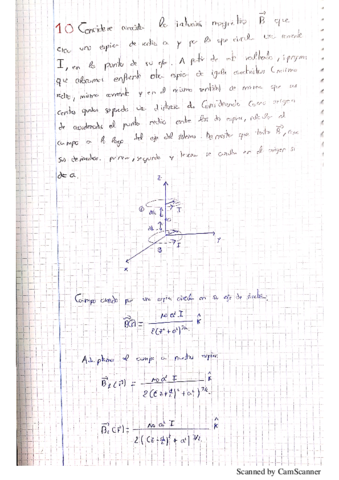 10 Considere conocida la inducción magnética B⃗ que
crea una espira de radio a y por la que circula una corriente
I, en los puntos de su eje. A partir de este resultado, suponga
que colocamos enfrente otra espira de iguales características (mismo
radio, misma corriente y en el mismo sentido) de manera que sus
centros quedan separados una distancia d. Considerando como origen
de coordenadas el punto medio entre las dos espiras, calcular el
campo a lo largo del eje del sistema. Demostrar que tanto B⃗, como
sus derivadas primera, segunda y tercera se anulan en el origen si
d = a.
z
I
I
y
x
Campo creado por una espira circular en su eje de simetría.
B⃗(r⃗) = μ₀ a² I / 2(z² + a²)^{3/2} k̂
Adaptamos el campo a nuestras espiras
B⃗₂(r⃗) = μ₀ a² I / 2((z + d/2)² + a²)^{3/2} k̂
B⃗₁(r⃗) = μ₀ a² I / 2((z - d/2)² + a²)^{3/2} k̂
Scanned by CamScanner